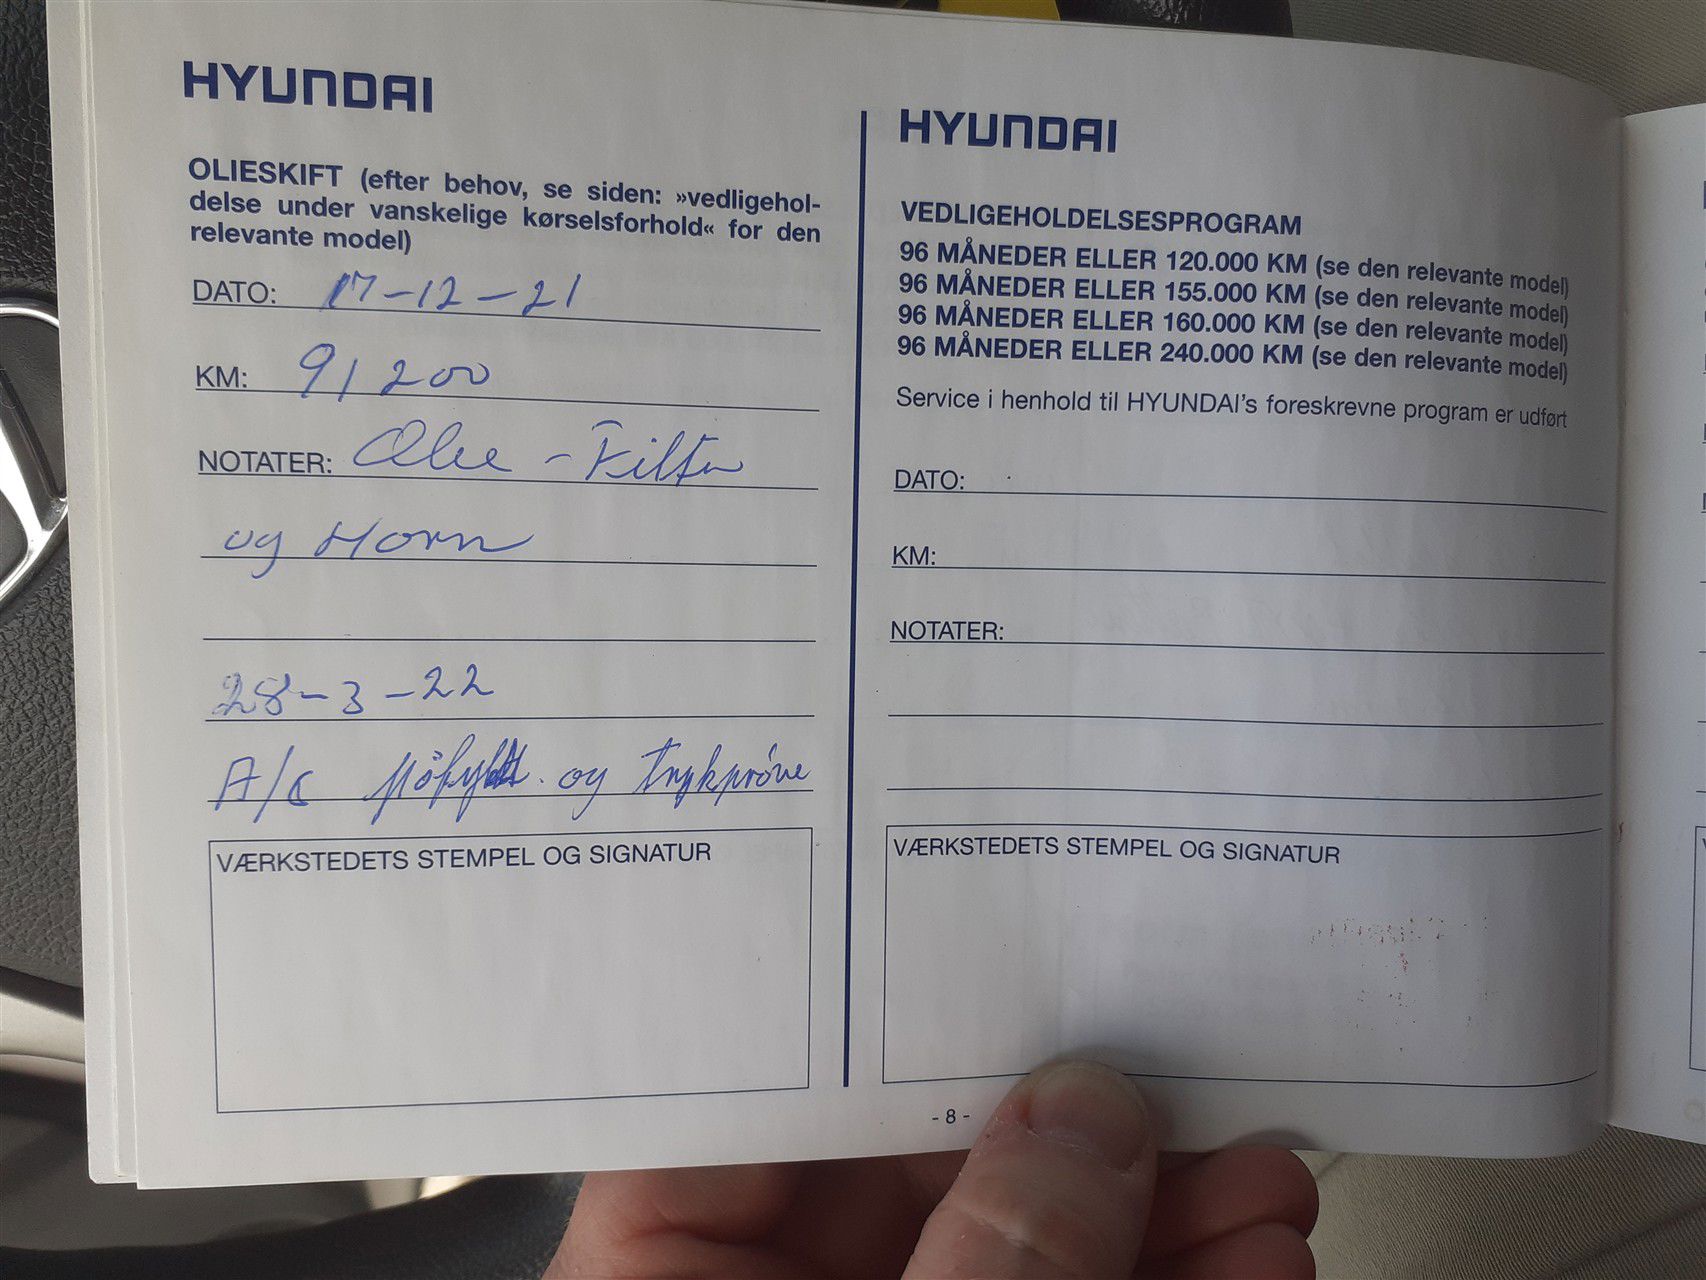 HYUNDAI
OLIESKIFT (efter behov, se siden: »vedligehol-
delse under vanskelige kørselsforhold« for den
relevante model)
DATO: 17-12-21
KM: 91200
NOTATER: Olie - Filter
og Horn
28-3-22
A/C påfyldt og trykprøve
VÆRKSTEDETS STEMPEL OG SIGNATUR
HYUNDAI
VEDLIGEHOLDELSESPROGRAM
96 MÅNEDER ELLER 120.000 KM (se den relevante model)
96 MÅNEDER ELLER 155.000 KM (se den relevante model)
96 MÅNEDER ELLER 160.000 KM (se den relevante model)
96 MÅNEDER ELLER 240.000 KM (se den relevante model)
Service i henhold til HYUNDAI's foreskrevne program er udført
DATO:
KM:
NOTATER:
VÆRKSTEDETS STEMPEL OG SIGNATUR
- 8 -